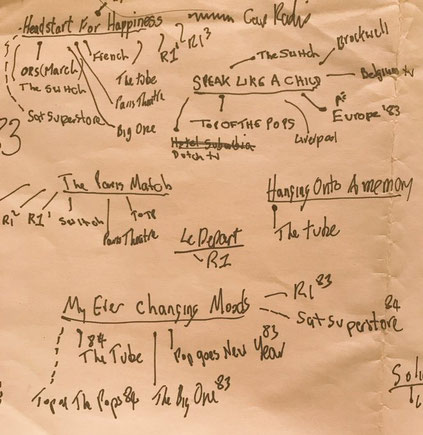 Headstart For Happiness
R1¹ R1³
French
ORS (March)
The Switch
The tube
Paris Theatre
Sat Superstore
Big One
The Switch
Brockwell
Belgium tv
SPEAK LIKE A CHILD
Europe '83
TOP OF THE POPS
Liverpool
Hotel Suburbia
Dutch tv
83
The Paris Match
R1² R1¹ Switch
TOTP
Paris Theatre
Hanging Onto A memory
The tube
Le Depart
R1
My Ever Changing Moods
R1 83
Sat Superstore 84
84
The Tube
Pop goes New Year 83
Top of The Pops 84
The Big One 83